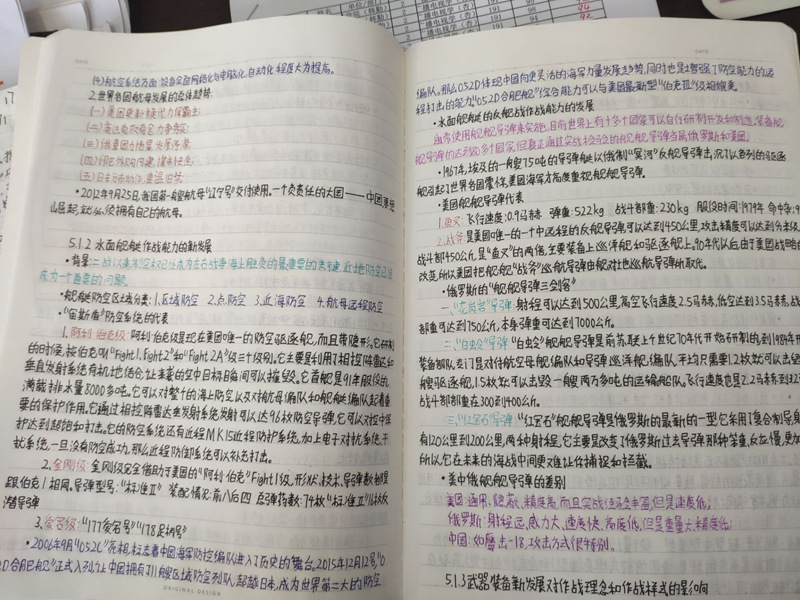 (4)航空系统方面:设备全面网络化与电脑化,自动化程度大为提高。
2.世界各国航母发展的总体趋势:
(一)美国更新换代力保霸主;
(二)英法角欧苑全力争夺;
(三)俄重国力绝量发展停滞;
(四)印巴效购自建,媒利未态;
(五)日本初动作,重温旧梦;
•2012年9月25日,我国第一艘航母"辽宁号"交付使用。一个负责任的大国——中国要想
山匡起,就必须拥有自己的航母。
5.1.2 水面舰艇作战能力的新发展
•背景:二战以来制空权已经成为左右战争海上胜负的最重要的关键,近地区防空已经
成为一个重要的问题。
•舰艇防空区域分类:1.区域防空 2.点防空 3.近海防空 4.航母远程防空
•"宙斯盾"防空系统的代表
1.阿利伯克级:阿利伯克级是现在美国唯一的防空驱逐舰,而且带隐形。它研制
的时候,按伯克叫"Fight1.Fight2"和"Fight2A"级三个级别。它主要是利用了相控阵雷达和
垂直发射系统有机地结合,让来袭的空中目标瞬间可以摧毁。它首舰是91年服役的,
满载排水量8000多吨。它可以对整个的海上防空以及对航母编队和舰艇编队起着重
要的保护作用。它通过相控阵雷达垂发射系统发射可以达96枚防空导弹,它可以对空中保
护达到起饱和打击。它的防空系统还有近程MK15近程防护系统,加上电子对抗系统,干
扰系统,一旦没有防空成功,那么近程防御系统可以补充打击。
2.金刚级:金刚级完全借助于美国的"阿利伯克"Fight1级,形状、技术、导弹数都是
跟伯克1相同。导弹型号:"标准Ⅱ" 装配情况:前八后四 总弹药数:74枚"标准Ⅱ"16枚反
潜导弹
3.爱宕级:"177爱宕号""178足柄号"
•2006年9月"052C"亮相,标志着中国海军防控编队进入了历史的舞台。2015年12月12号"0
D合肥舰"正式入列,让中国拥有了11艘区域防空列队,超越日本,成为世界第二大的防空
ORIGINAL DESIGN
编队。那么052D体现中国向更灵活的海军力量发展趋势,同时也是增强了防空能力的远
程打击的能力"052D合肥舰"综合能力可以与美国最新型"伯克Ⅲ"级相媲美。
•水面舰艇的反舰战作战能力的发展
通常使用舰舰导弹来实施,目前世界上有十多个国家可以自行研制开发和制造,装备舰
舰导弹的达到80多个国家,但真正通过实战检验的舰舰导弹当属俄罗斯和美国。
•1967年,埃及的一艘750吨的导弹艇以俄制"冥河"反舰导弹击沉了以色列的驱逐
舰,引起了世界各国震惊,美国海军才高度重视舰舰导弹。
•美国舰舰导弹代表
1.鱼叉:飞行速度:0.9马赫 弹重:522kg 战斗部重:230kg 服役时间:1979年 命中率:9
2.战斧是美国唯一的一个中远程的反舰导弹,可以达到450公里,攻击精度可以达到分米级
战斗部450公里,是"鱼叉"的两倍,主要装备上巡洋舰和驱逐舰上。90年代以后,由于美国战略的
改变,所以美国把舰舰"战斧"巡航导弹由舰对地巡航导弹所取代。
•俄罗斯的"舰舰导弹"
一、"花岗岩"导弹:射程可以达到500公里,高空飞行速度2.5马赫,低空达到3.5马赫,战
部重可达到750公斤,本身弹重可达到7000公斤。
二、"白虫令"导弹:"白虫令"舰舰导弹是前苏联上个世纪70年代开始研制的,到1984年开
装备部队,专门是对付航空母舰编队和导弹巡洋舰编队,平均只需要1.2枚就可以击毁一
艘驱逐舰,1.5枚就可以击毁一艘两万多吨的运输船队。飞行速度也是2.2马赫到32
战斗部都重在300到1400公斤。
三、"红宝石"导弹:"红宝石"舰舰导弹是俄罗斯的最新的一型,它采用了复合制导,身
有120公里到1200公里,两种射程,它主要是改变了俄罗斯过去导弹那种笨重,反应慢,更加
所以,它在未来的海战中间更难让你捕捉和拦截。
•美中俄舰舰导弹的差别
美国:通用,隐蔽,精度高,而且实战经验丰富,但是速度低;
俄罗斯:射程远,威力大、速度快、高度低,但是重量大,精度低;
中国:如鹰击-18,攻击方式很特别。
5.1.3武器装备新发展对作战理念和作战样式的影响